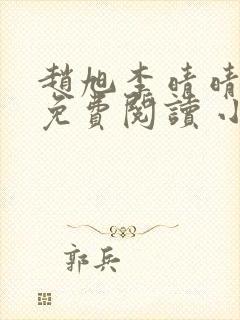 趙旭李晴晴
免費閱讀小
郭兵